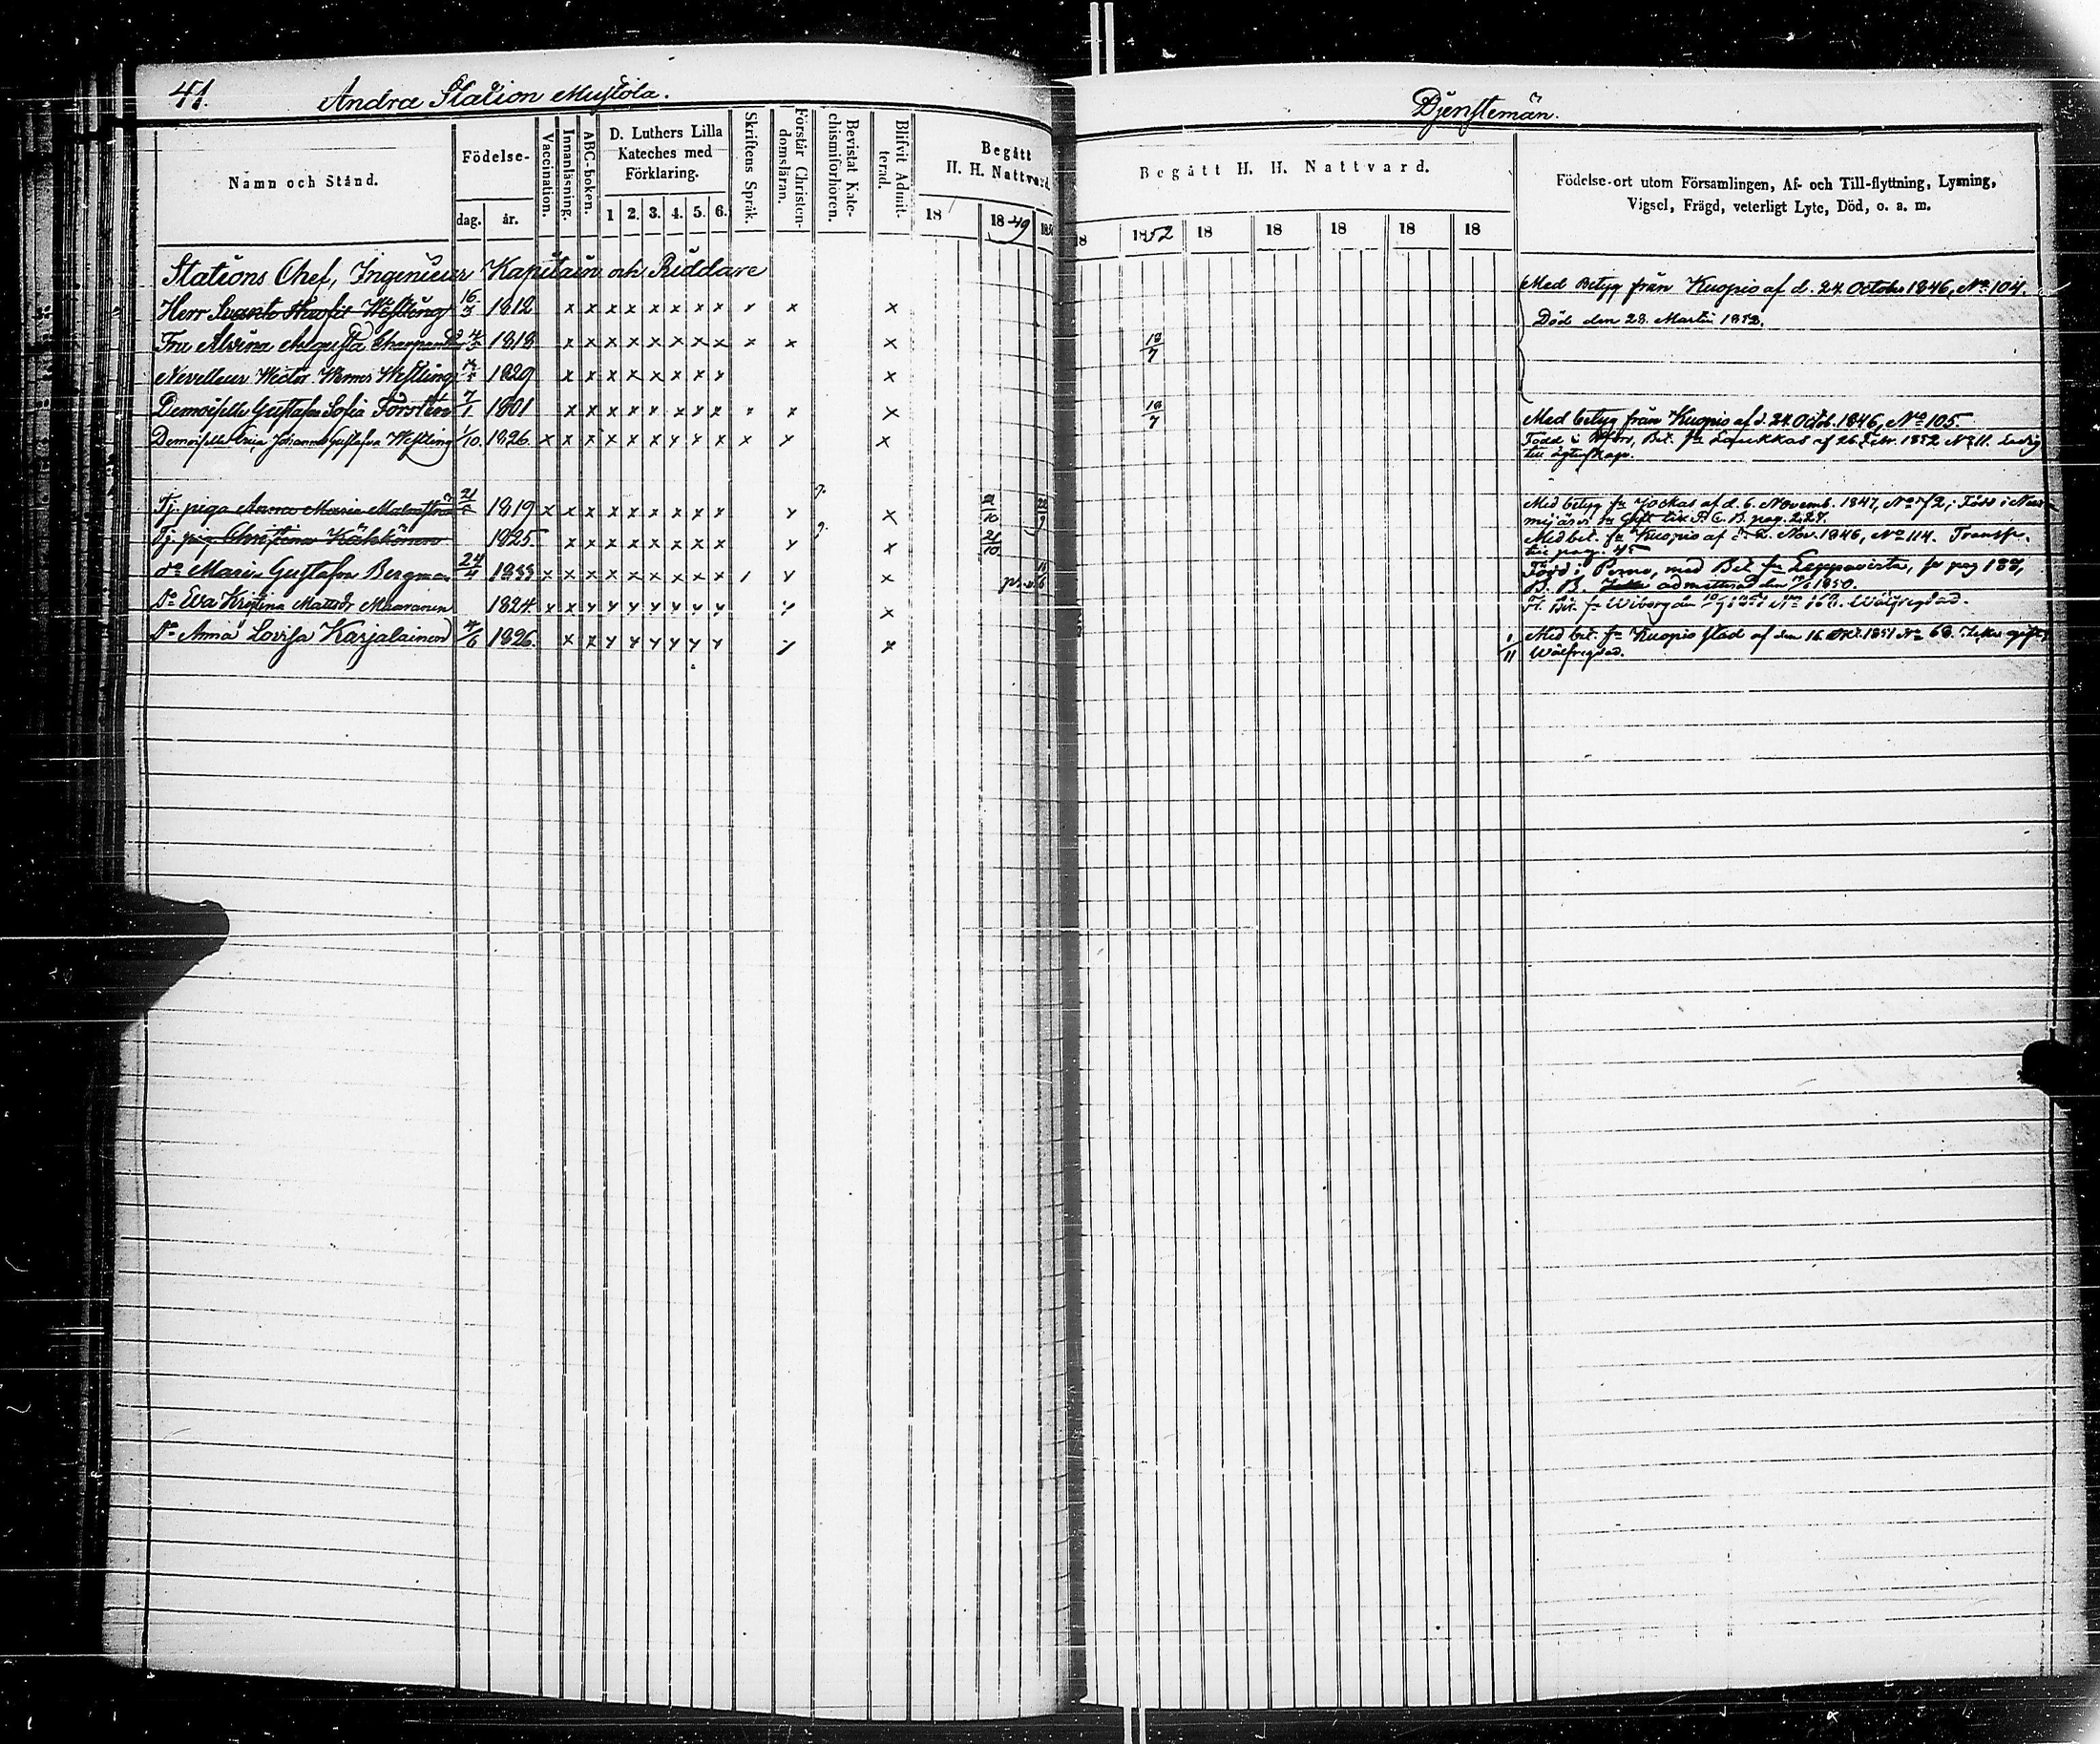 41.
Andra Station Mustola.
Djenstemän.
Namn och Stånd.
Födelse-
dag.
år.
Vaccination.
Innanläsning.
ABC-boken.
D. Luthers Lilla
Kateches med
Förklaring.
1 2. 3. 4. 5. 6.
Skriftens Språk.
Förstår Christen-
domsläran.
Bevistat Kate-
chismiförhoren.
Blifvit Admit-
terad.
Begått
H. H. Nattvard.
18 1849 185
Begått H. H. Nattvard.
18 1852 18 18 18 18 18
Födelse-ort utom Församlingen, Af- och Till-flyttning, Lysning,
Vigsel, Frägd, veterligt Lyte, Död, o. a. m.
Stations Chef, Ingenieur Kapitain och Riddare
Med Betyg från Kuopio af d. 24 October 1846, No 104.
Herr Svante Westling 16/3 1812 x x x x x x x x x x x
Död den 28. Martii 1852.
Fru Alvina Augusta 1818 x x x x x x x x x x x 18/7
Wictor Werner Westling 1829 x x x x x x x x x
Demoiselle Gustafva Sofia Forstén 7/1 1801 x x x x x x x x x x x 18/7
Med betyg från Kuopio af d. 24 Octob. 1846, No 105.
Demoiselle Johanna Gustafva Westling 1/10. 1826. x x x x x x x x x x x x
Född i Bet. fr af 26 Febr. 1852 No 11. ledig
till ägtenskap.
Tj. piga Anna Maria 21 1819 x x x x x x x x x x x 21/10 22/9
Med betyg fr Jockas af d. 6. Novemb. 1847, No 72; Född i
Gift till pag. 227.
Tj. pig. Christina 1825. x x x x x x x x x x 21/10
Med bet. fr Kuopio af Nov. 1846, No 114. Transp.
till pag. 45
Do Maria Gustafva Bergman 24/4 1833 x x x x x x x x x x x x 16/6
Född i Perno, med Bet. fr Leppävirta, fr pag 187,
B. B. admitterad den 1850.
Do Eva Kristina Mattsdr 1824. x x x x x x x x x x x
Bet. fr Wiborg den Wälfregdad.
Do Anna Lovisa Karjalainen 4/6 1826. x x x x x x x x x x 1/11
Med bet. fr Kuopio stad af den 16 Oct. 1851 No 68.
Wälfregdad.